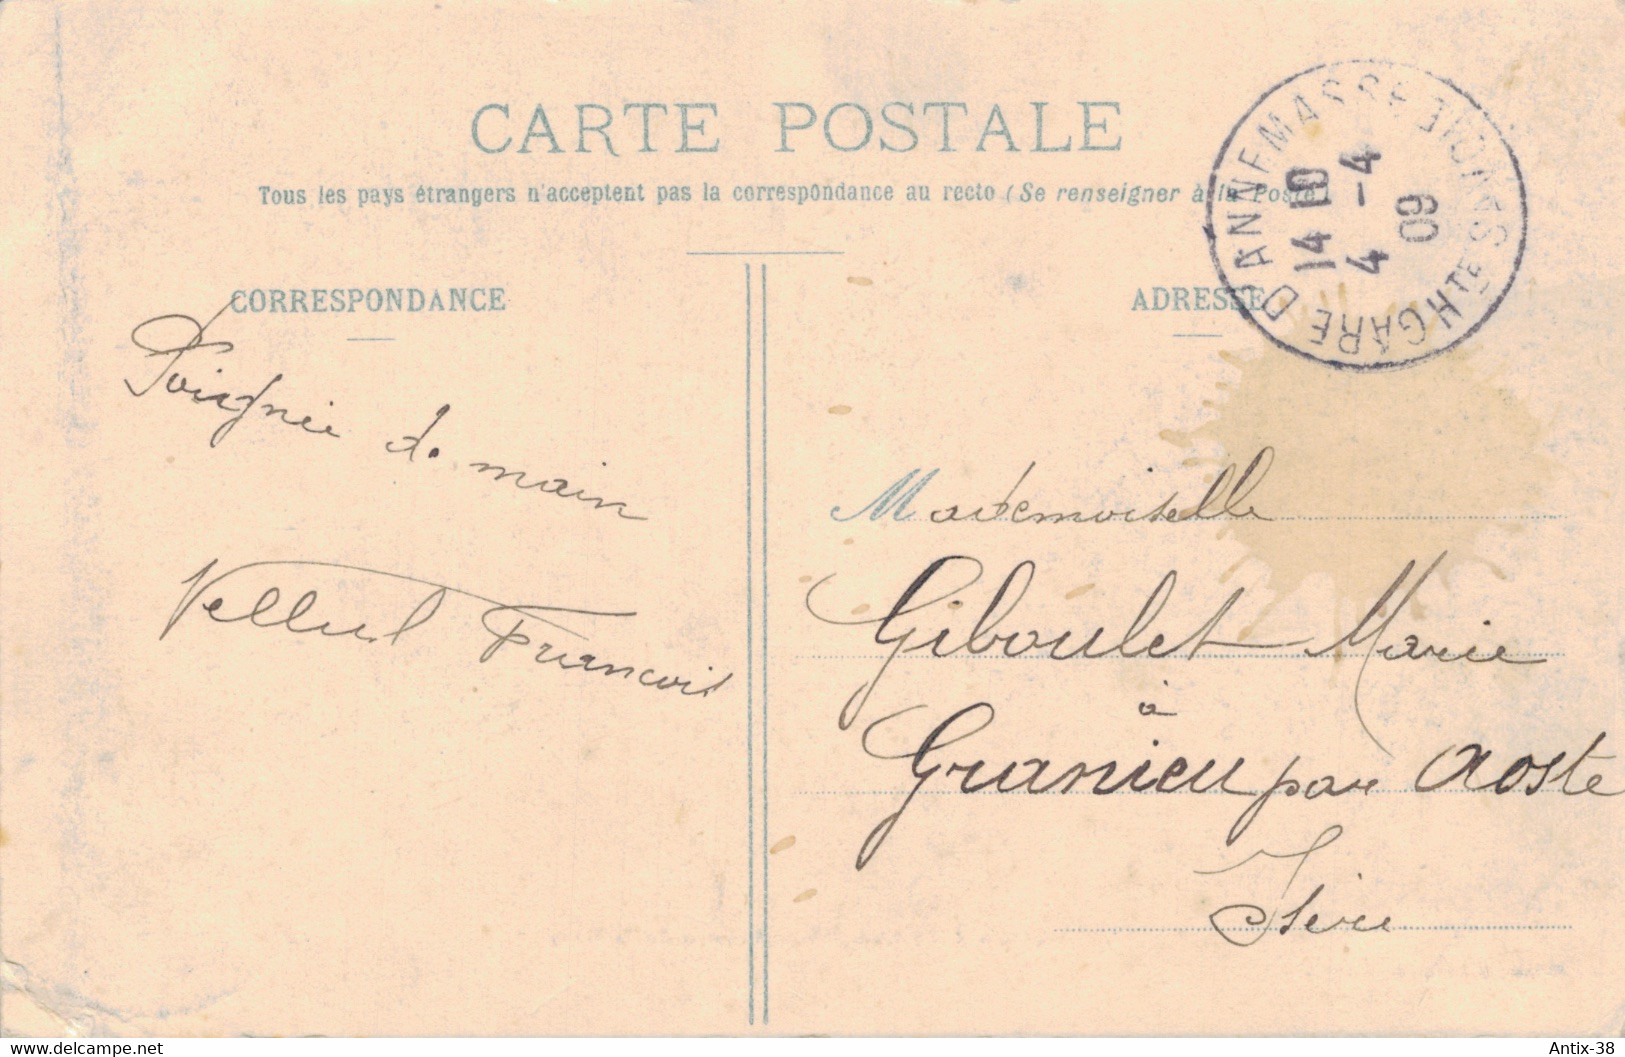 CARTE POSTALE
Tous les pays étrangers n'acceptent pas la correspondance au recto (Se renseigner à la Poste)
CORRESPONDANCE
ADRESSE
GARE D'ANNEMASSE
HTE SAVOIE
14
4 - 4
09
Poignée de main
François
Mademoiselle
Giboulet Marie
à
Granieu par Aoste
Isère
www.delcampe.net
Antix-38